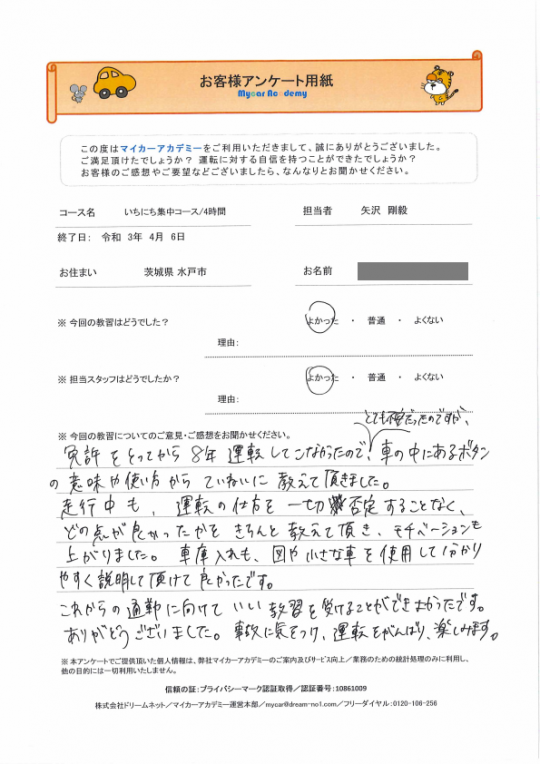 お客様アンケート用紙
Mycar Academy
この度はマイカーアカデミーをご利用いただきまして、誠にありがとうございました。
ご満足頂けたでしょうか? 運転に対する自信を持つことができたでしょうか?
お客様のご感想やご要望などございましたら、なんなりとお聞かせください。
コース名 いちにち集中コース/4時間 担当者 矢沢 剛毅
終了日: 令和 3年 4月 6日
お住まい 茨城県 水戸市 お名前
※ 今回の教習はどうでした? よかった ・ 普通 ・ よくない
理由:
※ 担当スタッフはどうでしたか? よかった ・ 普通 ・ よくない
理由:
とても不安だったのですが、
※ 今回の教習についてのご意見・ご感想をお聞かせください。
免許をとってから8年運転してこなかったので、車の中にあるボタン
の意味や使い方からていねいに教えて頂きました。
走行中も、運転の仕方を一切否定することなく、
どの点が良かったかをきちんと教えて頂き、モチベーションも
上がりました。車庫入れも、図や小さな車を使用して分かり
やすく説明して頂けて良かったです。
これからの通勤に向けていい教習を受けることができよかったです。
ありがとうございました。事故に気をつけ、運転をがんばり、楽しみます。
※ 本アンケートでご提供頂いた個人情報は、弊社マイカーアカデミーのご案内及びサービス向上/業務のための統計処理のみに利用し、
他の目的には一切利用いたしません。
信頼の証:プライバシーマーク認証取得/認証番号:10861009
株式会社ドリームネット/マイカーアカデミー運営本部/mycar@dream-no1.com/フリーダイヤル:0120-106-256